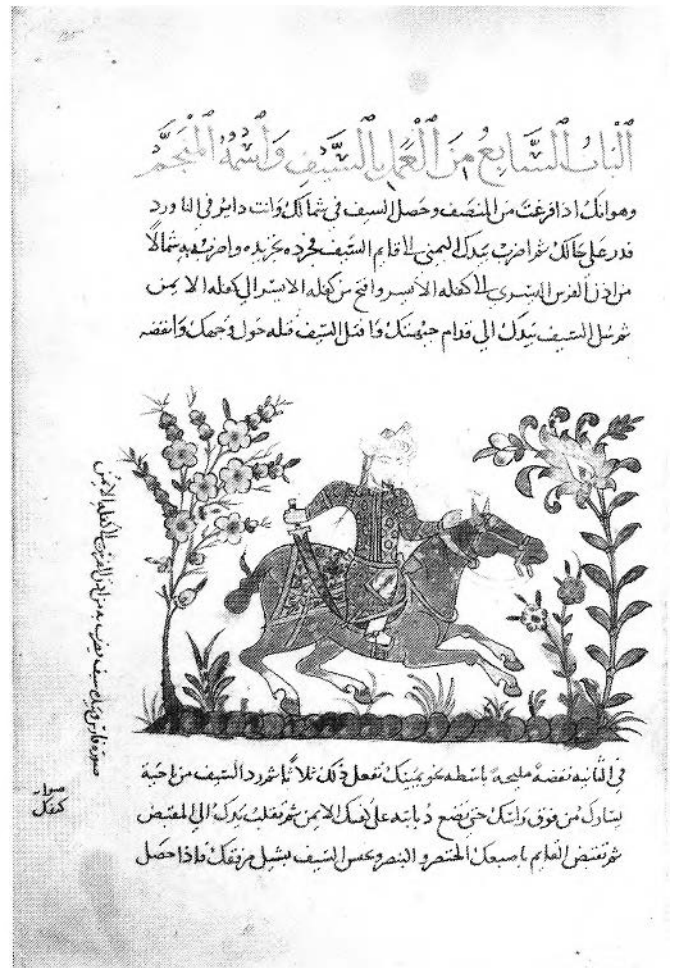 الْبَابُ السَّابِعُ مِنَ الْعَمَلِ بِالسَّيْفِ وَاسْمُهُ الْمُنَجَّمُ
وهو انك اذا فرغت من المنصف وحصل السيف في شمالك وانت داير في الناورد
قدر على حالك ثم اضرب بيدك اليمنى الى قايم السيف فجرده بحريده واضرب به شمالا
من اذن الفرس اليسرى الى كفله الايسر وافتح من كفله الايسر الى كفله الايمن
ثم شل السيف بيدك الى قدام جبهتك وافتل السيف فتله حول وجهك وانفضه
صورة فارس وبيده سيف يضرب به من اذن الفرس الى كفله الايمن
في الثانيه نفضة مليحة باسطه نحو يمينك تفعل ذلك ثلاثا ثم رد السيف من ناحية
يسارك من فوق راسك حتى تضع ذبابته على كتفك الايمن ثم تقلب يدك الى المقبض
ثم تقبض القايم باصبعك الخنصر والبنصر وعس السيف بشيل مرفقك فاذا حصل
صوابه
كفل